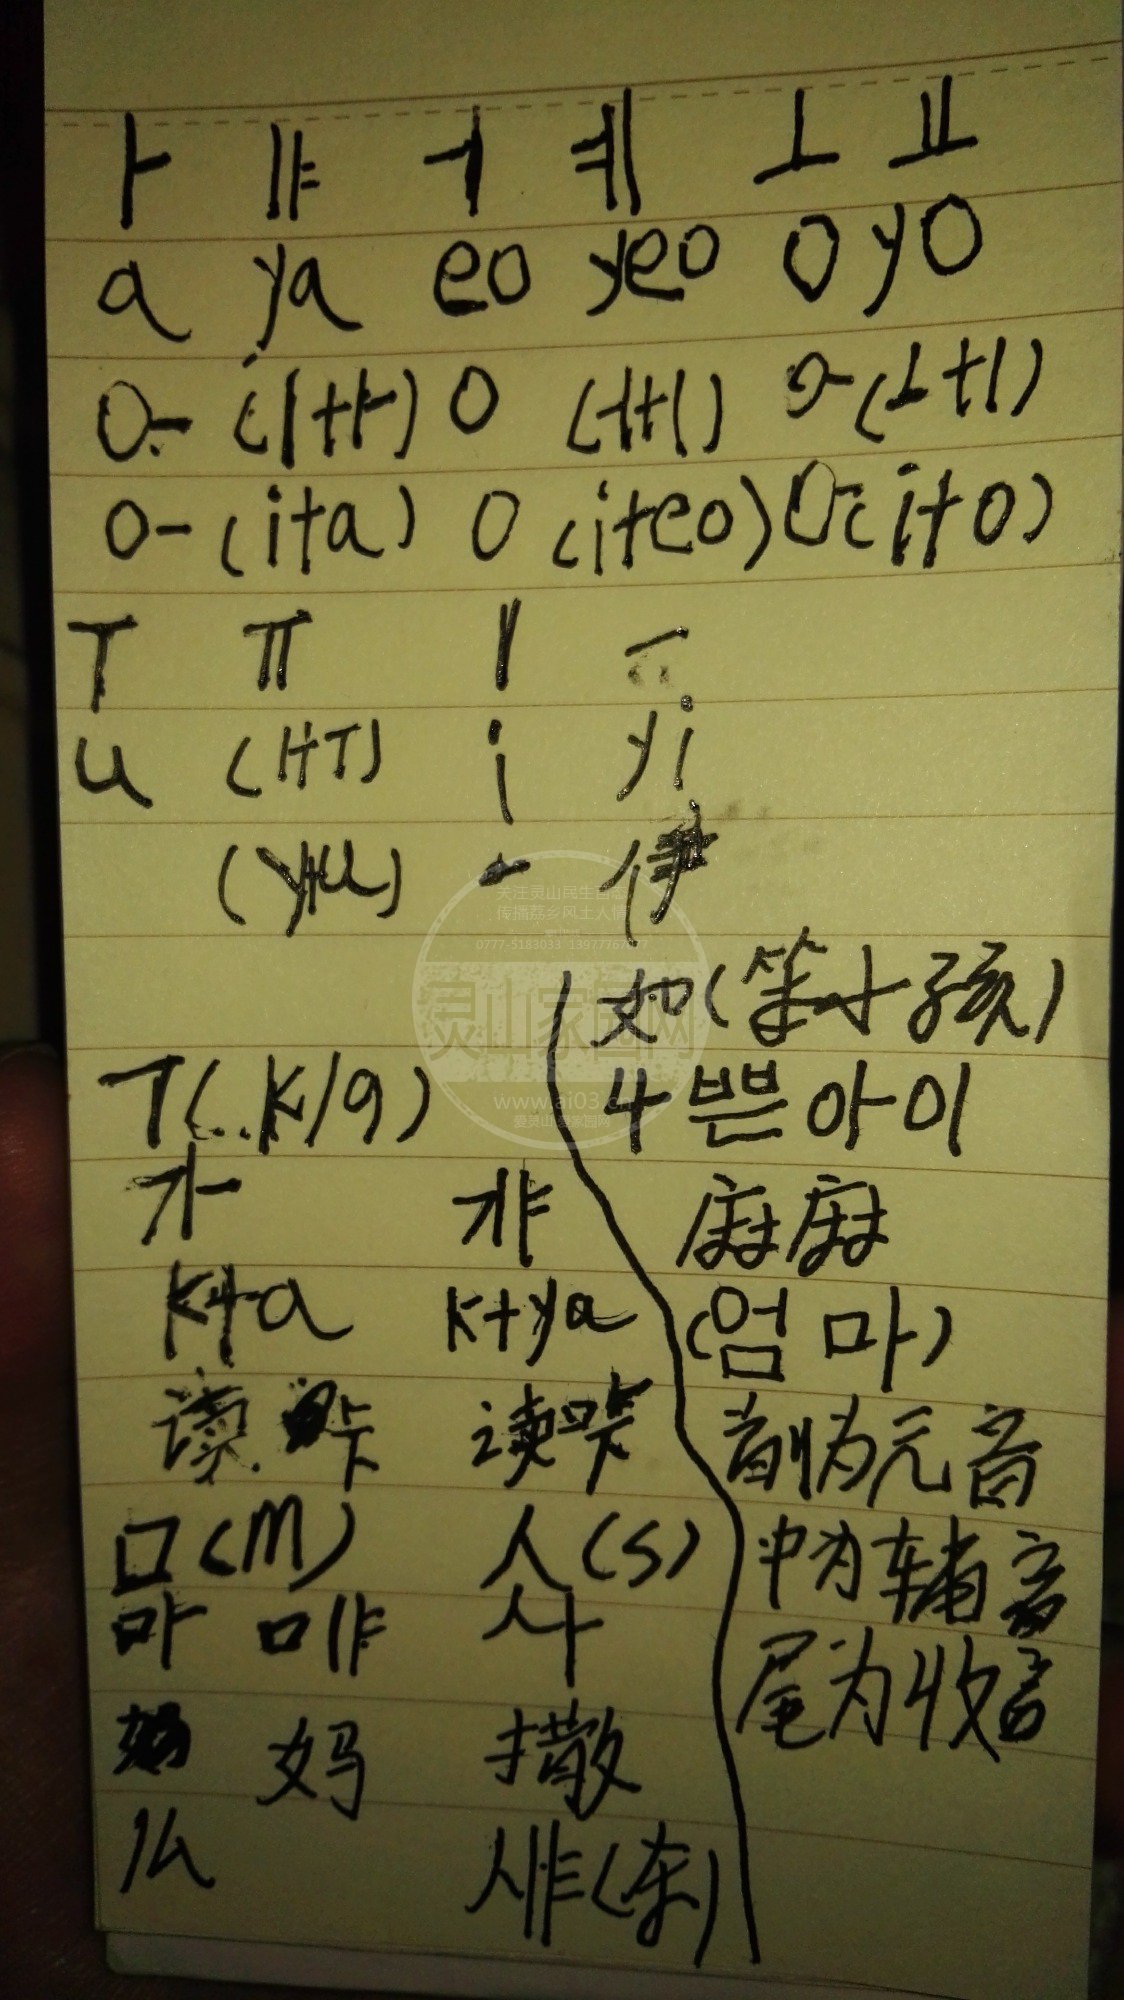 ㅏ ㅑ ㅓ ㅖ ㅗ ㅛ
a ya eo yeo o yo
o- (ㅣ+ㅏ) o (ㅓ+ㅣ) o-(ㅗ+ㅣ)
o- (i+a) o (i+eo) (i+o)
ㅜ ㅠ ㅣ ㅡ
u (ㅏ+ㅜ) i yi
(y+u) 一 伊
如(笨小孩)
ㄱ(..k/g)
나쁜아이
가 갸
麻麻
k+a k+ya
(엄마)
读 卡 读
首则为元音
ㅁ(m) 人(s)
中为辅音
마 먀 사
尾为收音
妈 撒
么 샤(东)
关注灵山民生百态
传播荔乡风土人情
0777-5183033 13977767017
灵山家园网
www.ai03.cn
爱灵山 爱家园网